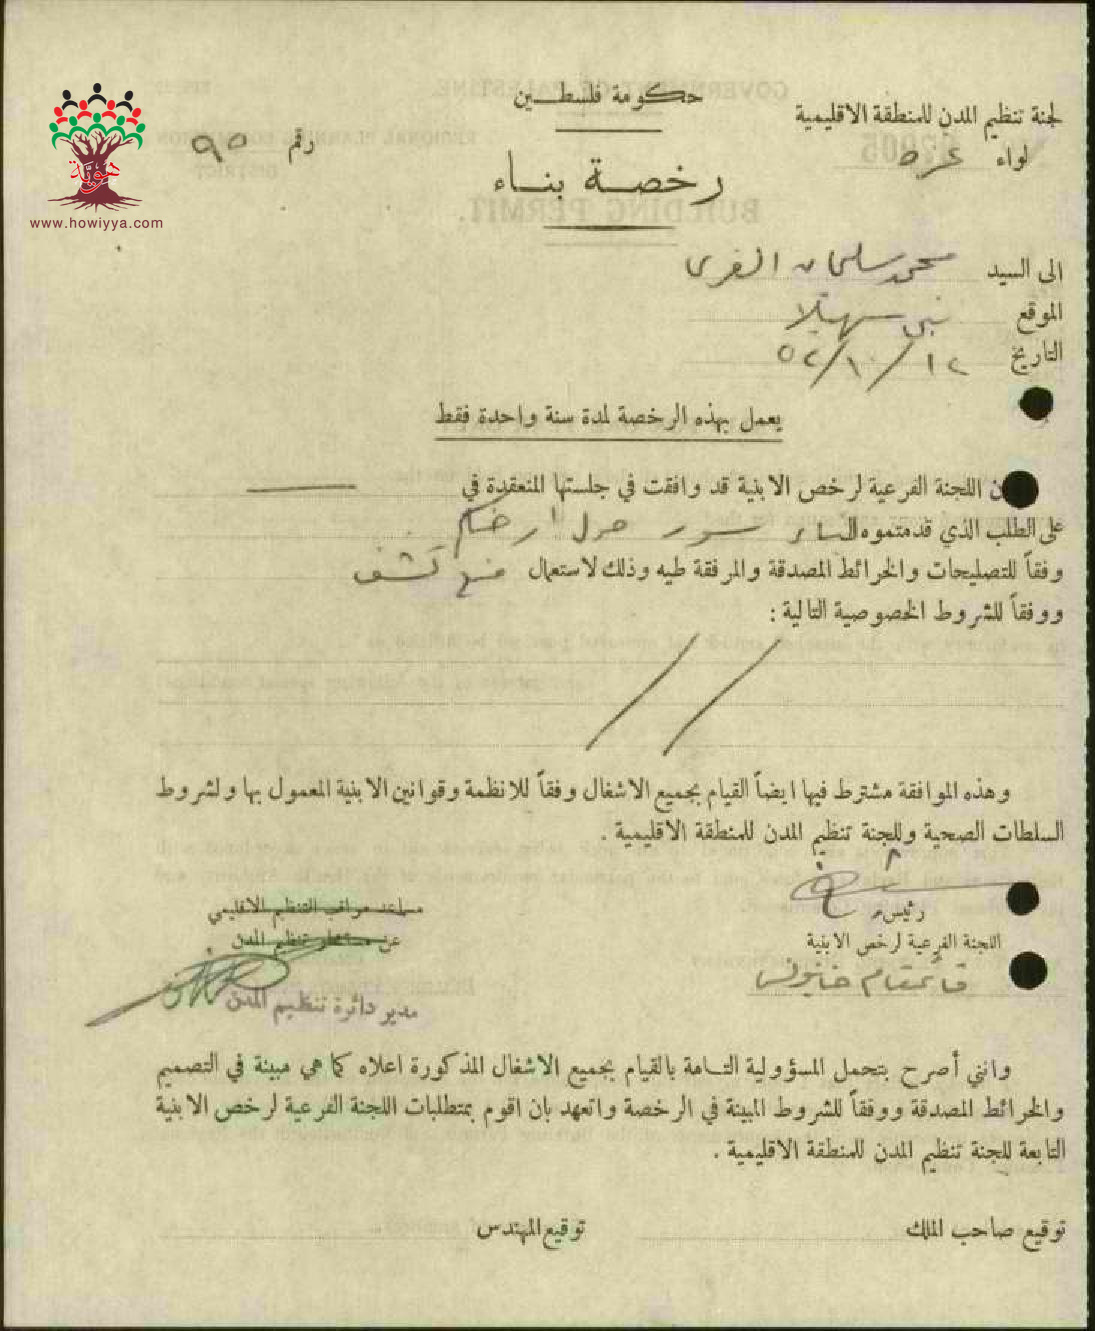 حكومة فلسطين
لجنة تنظيم المدن للمنطقة الاقليمية
لواء غزه
رقم ٩٥
رخصة بناء
هوية
www.howiyya.com
الى السيد محمد سلمان الفرى
الموقع بني سهيلا
التاريخ ١٢/١٠/٥٢
يعمل بهذه الرخصة لمدة سنة واحدة فقط
ن اللجنة الفرعية لرخص الابنية قد وافقت في جلستها المنعقدة في
على الطلب الذي قدمتموه لبناء سور حول ارضكم
وفقاً للتصليحات والخرائط المصدقة والمرفقة طيه وذلك لاستعمال كشف
ووفقاً للشروط الخصوصية التالية :
وهذه الموافقة مشترط فيها ايضاً القيام بجميع الاشغال وفقاً للانظمة وقوانين الابنية المعمول بها ولشروط
السلطات الصحية وللجنة تنظيم المدن للمنطقة الاقليمية .
رئيس
اللجنة الفرعية لرخص الابنية
قائمقام خانيونس
مساعد مراقب التنظيم الاقليمي
عن مستشار تنظيم المدن
مدير دائرة تنظيم المدن
وانني أصرح بتحمل المسؤولية التامة بالقيام بجميع الاشغال المذكورة اعلاه كما هي مبينة في التصميم
والخرائط المصدقة ووفقاً للشروط المبينة في الرخصة واتعهد بان اقوم بمتطلبات اللجنة الفرعية لرخص الابنية
التابعة للجنة تنظيم المدن للمنطقة الاقليمية .
توقيع صاحب الملك
توقيع المهندس